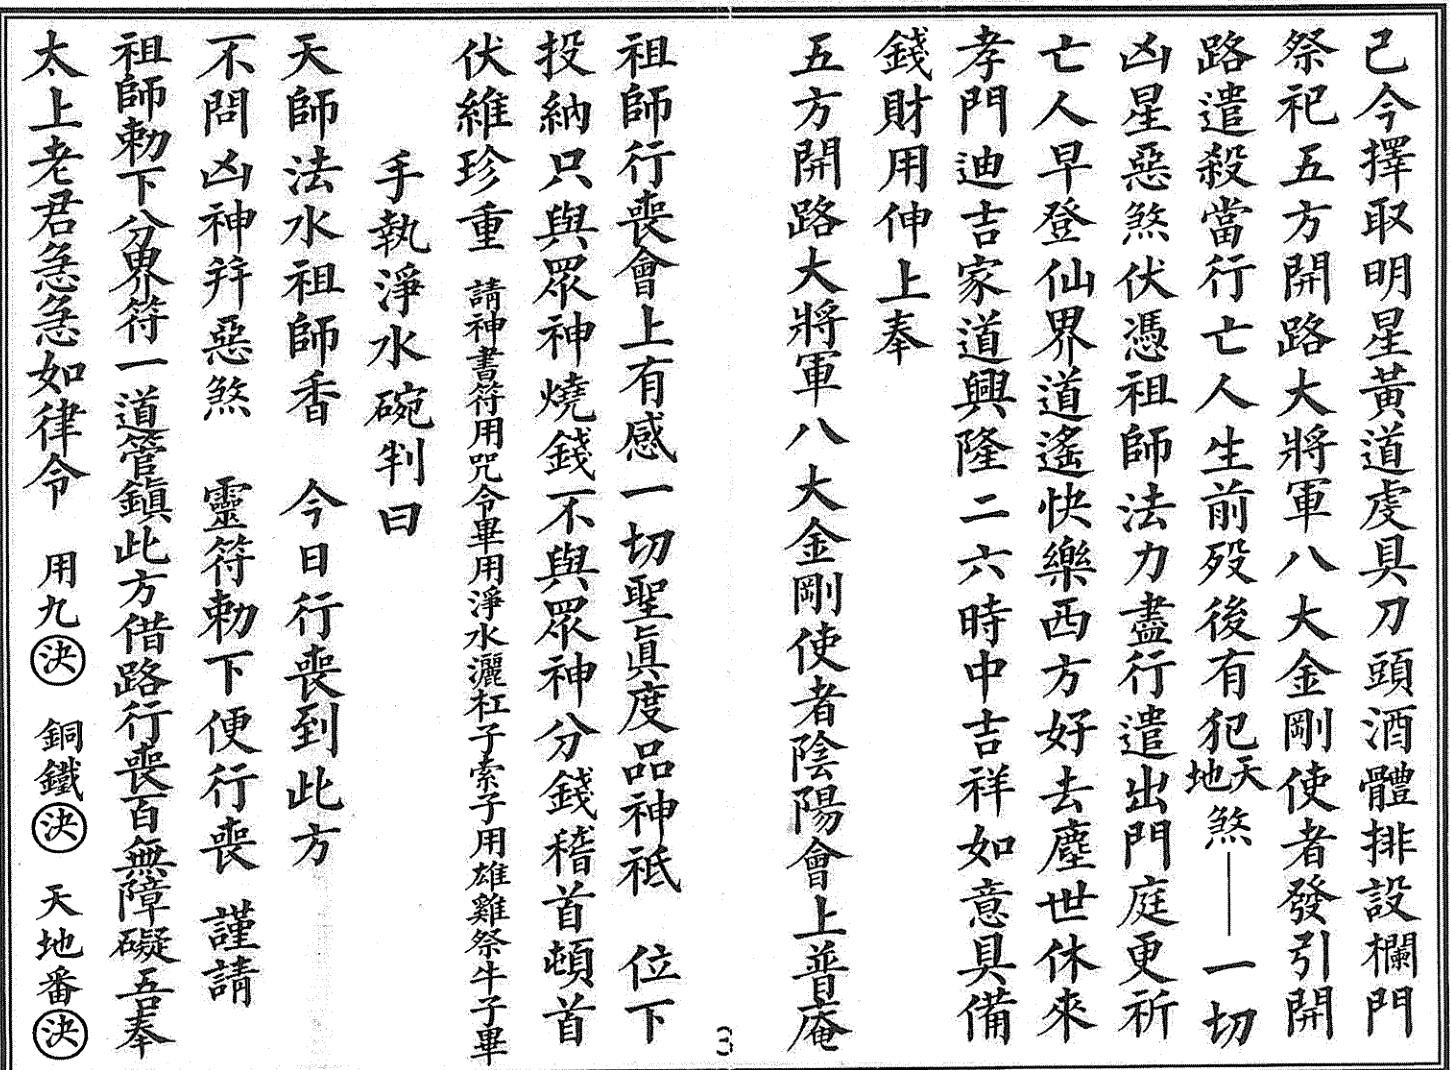 己今擇取明星黃道虔具刀頭酒體排設欄門
祭祀五方開路大將軍八大金剛使者發引開
路遣殺當行亡人生前歿後有犯天地煞——一切
凶星惡煞伏憑祖師法力盡行遣出門庭更祈
亡人早登仙界道遙快樂西方好去塵世休來
孝門迪吉家道興隆二六時中吉祥如意具備
錢財用伸上奉
五方開路大將軍八大金剛使者陰陽會上普庵
祖師行喪會上有感一切聖眞度品神祇 位下
投納只與眾神燒錢不與眾神分錢稽首頓首
伏維珍重 請神書符用咒令畢用淨水灑杠子索子用雄雞祭牛子畢
手執淨水碗判曰
天師法水祖師香 今日行喪到此方
不問凶神并惡煞 靈符勅下便行喪 謹請
祖師勅下分界符一道管鎮此方借路行喪百無障礙吾奉
太上老君急急如律令 用九決 銅鐵決 天地番決
3